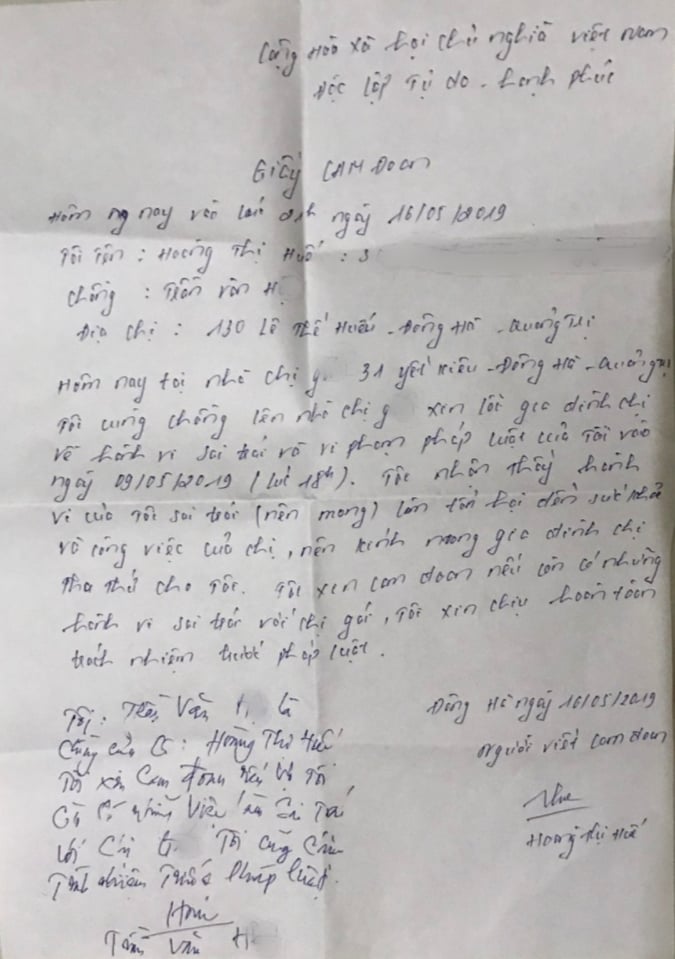 Cộng Hòa xã hội chủ nghĩa việt nam
Độc lập Tự do - hạnh phúc
Giấy CAM ĐOAN
Hôm nay vào lúc 21h ngày 16/05/2019
Tôi tên : Hoàng Thị Huế : 3
Chồng : Trần văn H
Địa chỉ : 130 Lê Thế Hiếu - Đông Hà - Quảng Trị
Hôm nay tại nhà chị g 31 yết Kiêu - Đông Hà - Quảng Trị
Tôi cùng chồng lên nhà chị g xin lỗi gia đình chị
về hành vi sai trái và vi phạm pháp luật của Tôi vào
ngày 09/05/2019 (lúc 18h). Tôi nhận thấy hành
vi của Tôi sai trái (nên mong) làm tổn hại đến sức khỏe
và công việc của chị, nên kính mong gia đình chị
tha thứ cho Tôi. Tôi xin cam đoan nếu còn có những
hành vi sai trái với chị gái, Tôi xin chịu hoàn toàn
trách nhiệm trước pháp luật.
Tôi: Trần Văn H là
Chồng của C: Hoàng Thị Huế
Tôi xin Cam đoan nếu vợ Tôi
Còn có những việc làm Sai Trái
với Chị Tôi cũng Chịu
Trách nhiệm Trước Pháp luật.
Trần Văn H
Đông Hà ngày 16/05/2019
Người viết cam đoan
Hoàng Thị Huế